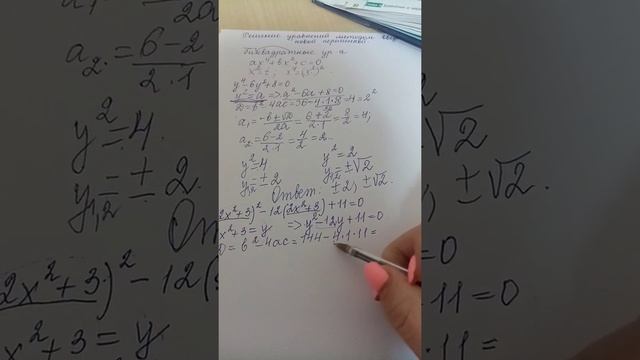 Решение уравнений методом введ
новой переменной.
Биквадратные ур-я
ax⁴+bx²+c=0
x²=t, x⁴=(x²)²
y⁴-6y²+8=0
y²=a => a²-6a+8=0
D=b²-4ac=36-4·1·8=4=2²
a₁=(-b±√D)/2a=(6+2)/(2·1)=8/2=4;
a₂=(6-2)/(2·1)=4/2=2.
y²=4 y²=2
y₁,₂=±2 y₁,₂=±√2
Ответ: ±2; ±√2.
2x²+3)²-12(2x²+3)+11=0
x²+3=y => y²-12y+11=0
D=b²-4ac=144-4·1·11=